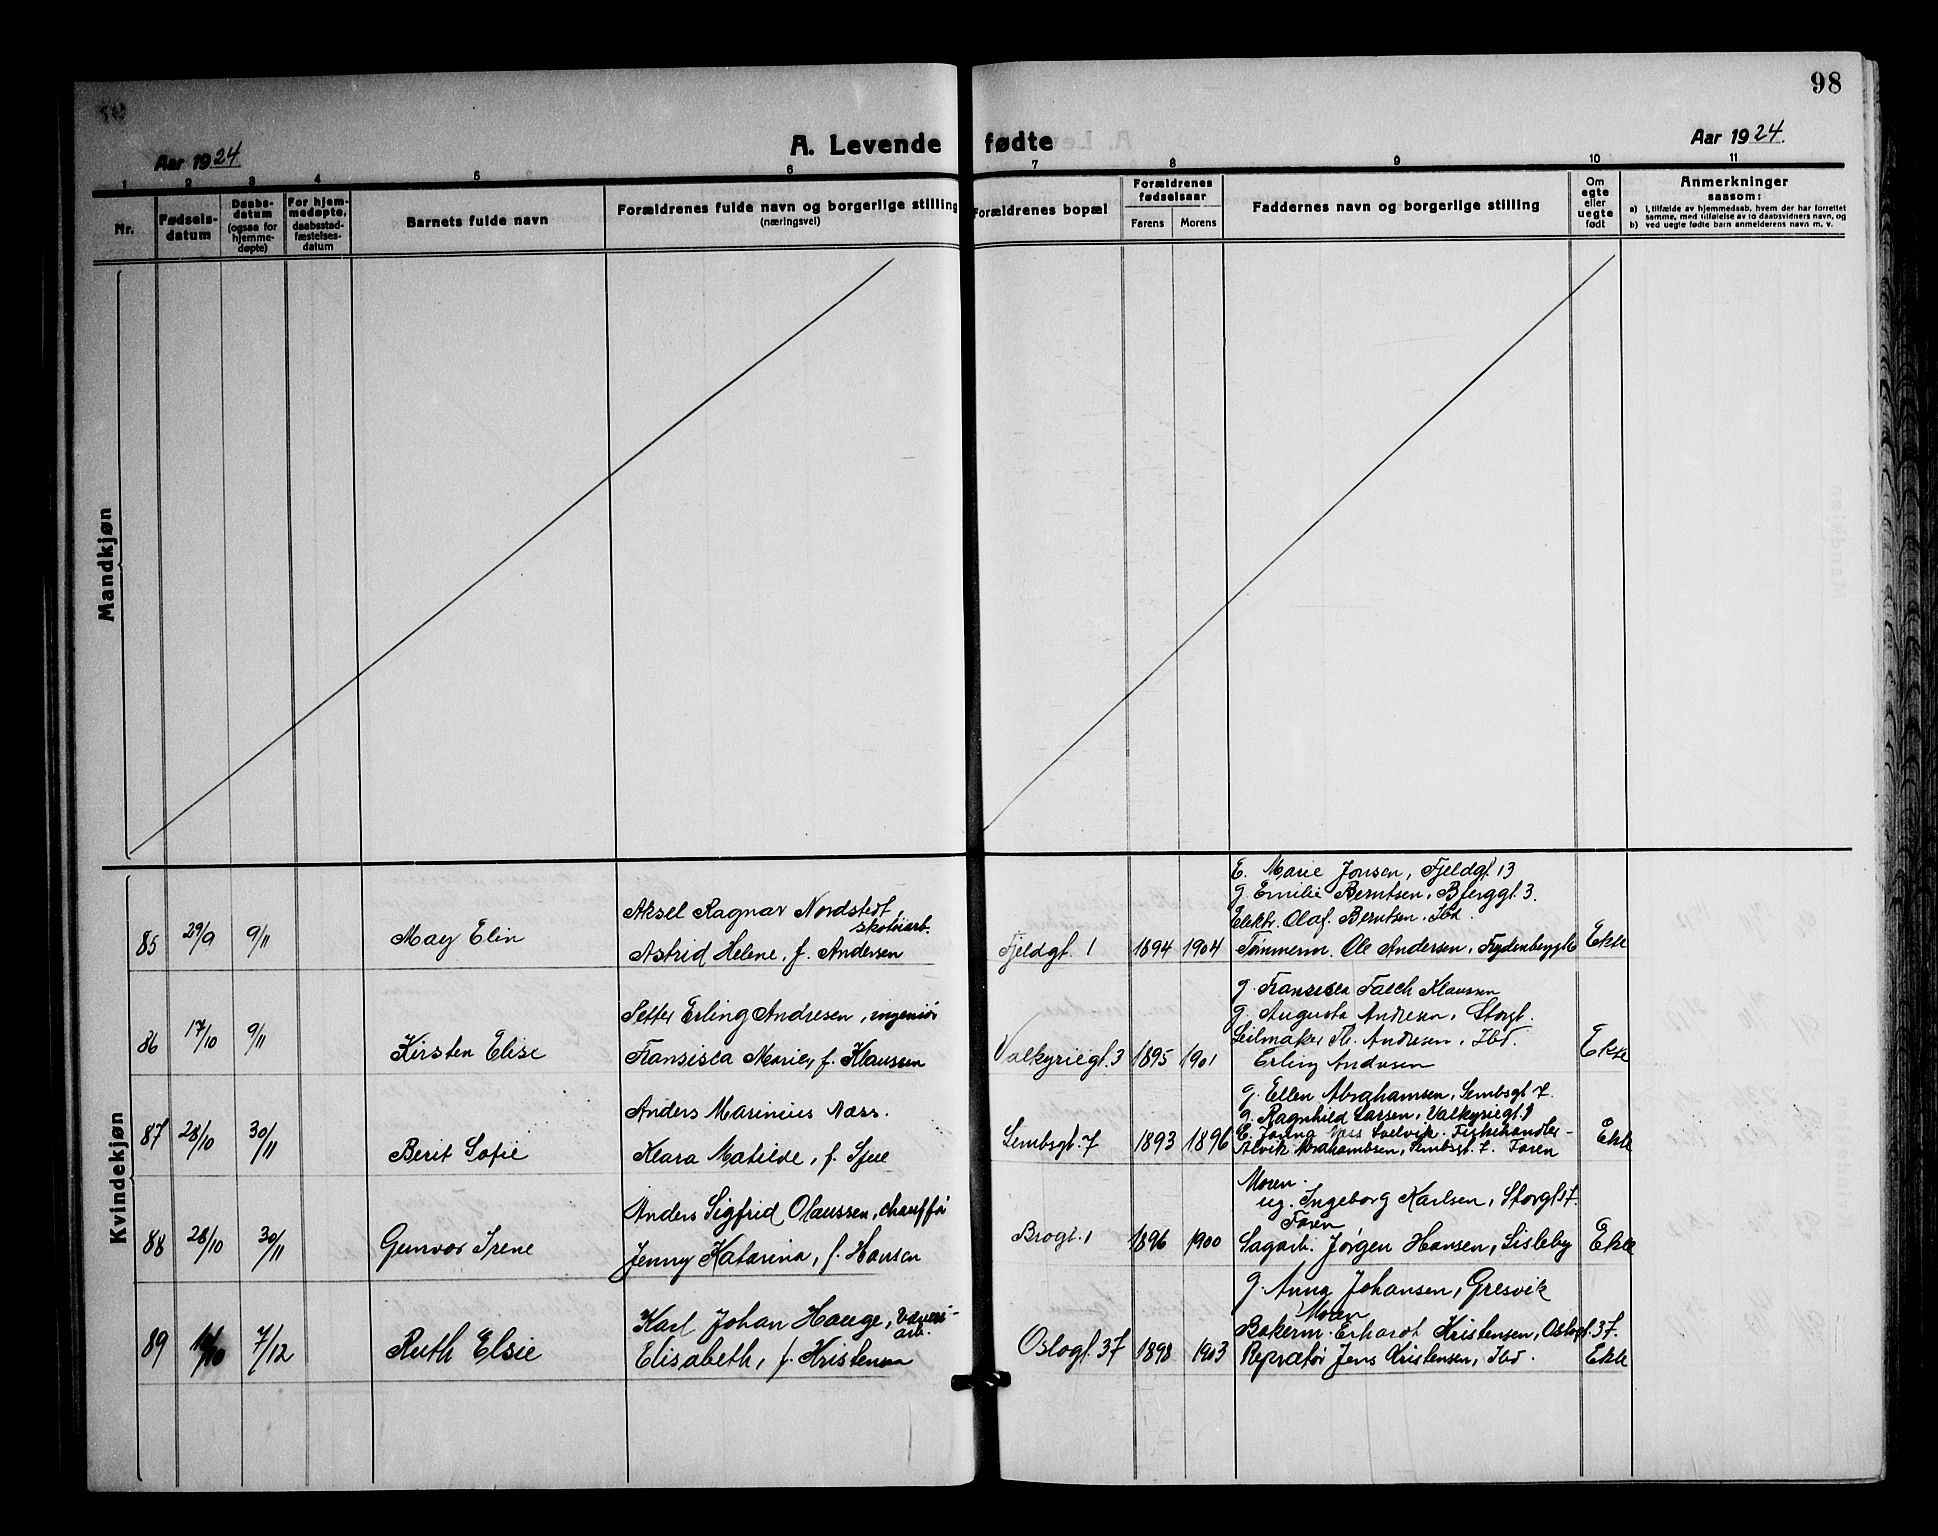 98
Aar 1924
A. Levende fødte
Aar 1924.
1 2 3 4 5 6 7 8 9 10 11
Nr.
Fødsels-
datum
Daabs-
datum
(ogsaa for
hjemme-
døpte)
For hjem-
medøpte,
daabsstad-
fæstelses-
datum
Barnets fulde navn
Forældrenes fulde navn og borgerlige stilling
(næringsvei)
Forældrenes bopæl
Forældrenes
fødselsaar
Farens Morens
Faddernes navn og borgerlige stilling
Om
egte
eller
uegte
født
Anmerkninger
saasom:
a) i tilfælde av hjemmedaab, hvem der har forrettet
samme, med tilføielse av to daabsvidners navn, og
b) ved uegte fødte barn anmelderens navn m. v.
Mandkjøn
Kvindekjøn
85 29/9 9/11 May Elin
Aksel Ragnar Nordstedt,
skotøiarb.
Astrid Helene, f. Andersen
Fjeldgt. 1 1894 1904
E. Marie Jonsen, Fjeldgt. 13
g. Emilie Berntsen, Bjerggt. 3.
Elektr. Olaf Berntsen, Ibd.
Tømmerm. Ole Andersen, Frydenberggt
Ekte
86 17/10 9/11 Kirsten Elise
Petter Erling Andresen, ingeniør
Fransisca Marie, f. Klaussen
Valkyriegt. 3 1895 1901
g. Fransisca Faech Klaussen
g. Augusta Andresen, Storgt.
Seilmaker Th. Andresen, Ibd.
Erling Andresen
Ekte
87 28/10 30/11 Berit Sofie
Anders Marinius Næss.
Klara Matilde, f.
Lembsgt. 7 1893 1896
g. Ellen Abrahamsen, Lembsgt. 7.
g. Ragnhild Larsen, Valkyriegt. 1
Fiskehandler
Abrahamsen, Lembsgt. 7. Faren
Ekte
88 28/10 30/11 Gunvor Irene
Anders Sigfrid Olaussen, chauffør
Jenny Katarina, f. Hansen
Brogt. 1 1896 1900
Moren.
ug. Ingeborg Karlsen, Storgt. 17.
Faren
Sagarb. Jørgen Hansen, Lisleby
Ekte
89 7/12 Ruth Elsie
Karl Johan Hauge,
arb.
Elisabeth, f. Kristensen
Oslogt. 37 1898 1903
g. Anna Johansen, Gresvik
Moren
Bakerm. Erhardt Kristensen, Oslogt. 37.
Repratør Jens Kristensen, Ibd.
Ekte